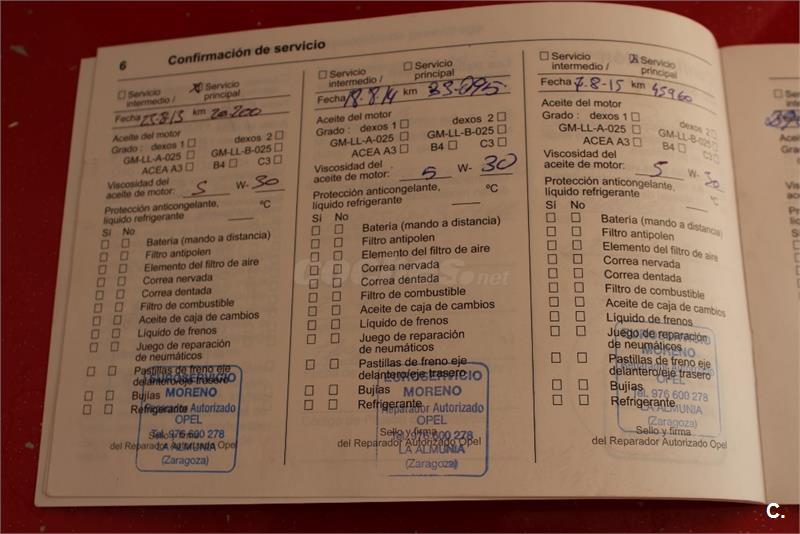 6 Confirmación de servicio
☐ Servicio intermedio / ☒ Servicio principal
Fecha 13.8.13 km 20.200
Aceite del motor
Grado : dexos 1 ☐ dexos 2 ☐
GM-LL-A-025 ☐ GM-LL-B-025 ☐
ACEA A3 ☐ B4 ☐ C3 ☐
Viscosidad del
aceite de motor: 5 W- 30
Protección anticongelante,
líquido refrigerante ____ °C
Sí No
☐ ☐ Batería (mando a distancia)
☐ ☐ Filtro antipolen
☐ ☐ Elemento del filtro de aire
☐ ☐ Correa nervada
☐ ☐ Correa dentada
☐ ☐ Filtro de combustible
☐ ☐ Aceite de caja de cambios
☐ ☐ Líquido de frenos
☐ ☐ Juego de reparación
de neumáticos
☐ ☐ Pastillas de freno eje
delantero/eje trasero
☐ ☐ Bujías
☐ ☐ Refrigerante
Sello y firma
del Reparador Autorizado Opel
EUROSERVICIO
MORENO
Reparador Autorizado
OPEL
Tel. 976 600 278
LA ALMUNIA
(Zaragoza)
☐ Servicio intermedio / ☐ Servicio principal
Fecha 18.8.14 km 33.095
Aceite del motor
Grado : dexos 1 ☐ dexos 2 ☐
GM-LL-A-025 ☐ GM-LL-B-025 ☐
ACEA A3 ☐ B4 ☐ C3 ☐
Viscosidad del
aceite de motor: 5 W- 30
Protección anticongelante,
líquido refrigerante ____ °C
Sí No
☐ ☐ Batería (mando a distancia)
☐ ☐ Filtro antipolen
☐ ☐ Elemento del filtro de aire
☐ ☐ Correa nervada
☐ ☐ Correa dentada
☐ ☐ Filtro de combustible
☐ ☐ Aceite de caja de cambios
☐ ☐ Líquido de frenos
☐ ☐ Juego de reparación
de neumáticos
☐ ☐ Pastillas de freno eje
delantero/eje trasero
☐ ☐ Bujías
☐ ☐ Refrigerante
Sello y firma
del Reparador Autorizado Opel
EUROSERVICIO
MORENO
Reparador Autorizado
OPEL
Tel. 976 600 278
LA ALMUNIA
(Zaragoza)
☐ Servicio intermedio / ☒ Servicio principal
Fecha 7.8-15 km 45960
Aceite del motor
Grado : dexos 1 ☐ dexos 2 ☐
GM-LL-A-025 ☐ GM-LL-B-025 ☐
ACEA A3 ☐ B4 ☐ C3 ☐
Viscosidad del
aceite de motor: 5 W- 30
Protección anticongelante,
líquido refrigerante ____ °C
Sí No
☐ ☐ Batería (mando a distancia)
☐ ☐ Filtro antipolen
☐ ☐ Elemento del filtro de aire
☐ ☐ Correa nervada
☐ ☐ Correa dentada
☐ ☐ Filtro de combustible
☐ ☐ Aceite de caja de cambios
☐ ☐ Líquido de frenos
☐ ☐ Juego de reparación
de neumáticos
☐ ☐ Pastillas de freno eje
delantero/eje trasero
☐ ☐ Bujías
☐ ☐ Refrigerante
Sello y firma
del Reparador Autorizado Opel
EUROSERVICIO
MORENO
Reparador Autorizado
OPEL
Tel. 976 600 278
LA ALMUNIA
(Zaragoza)
coches.net
C.